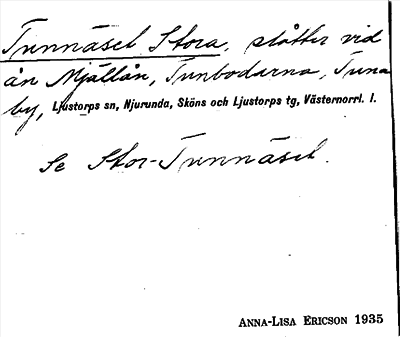 Tunnäset, Stora, slåtter vid
ån Mjällån, Tunbodarna, Tuna
by, Ljustorps sn, Njurunda, Sköns och Ljustorps tg, Västernorrl. l.
Se Stor-Tunnäset.
ANNA-LISA ERICSON 1935